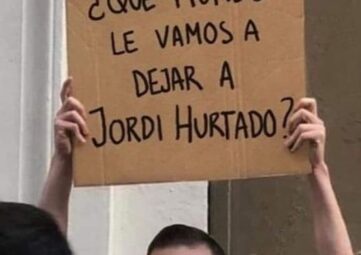 ¿QUÉ MUNDO
LE VAMOS A
DEJAR A
JORDI HURTADO?